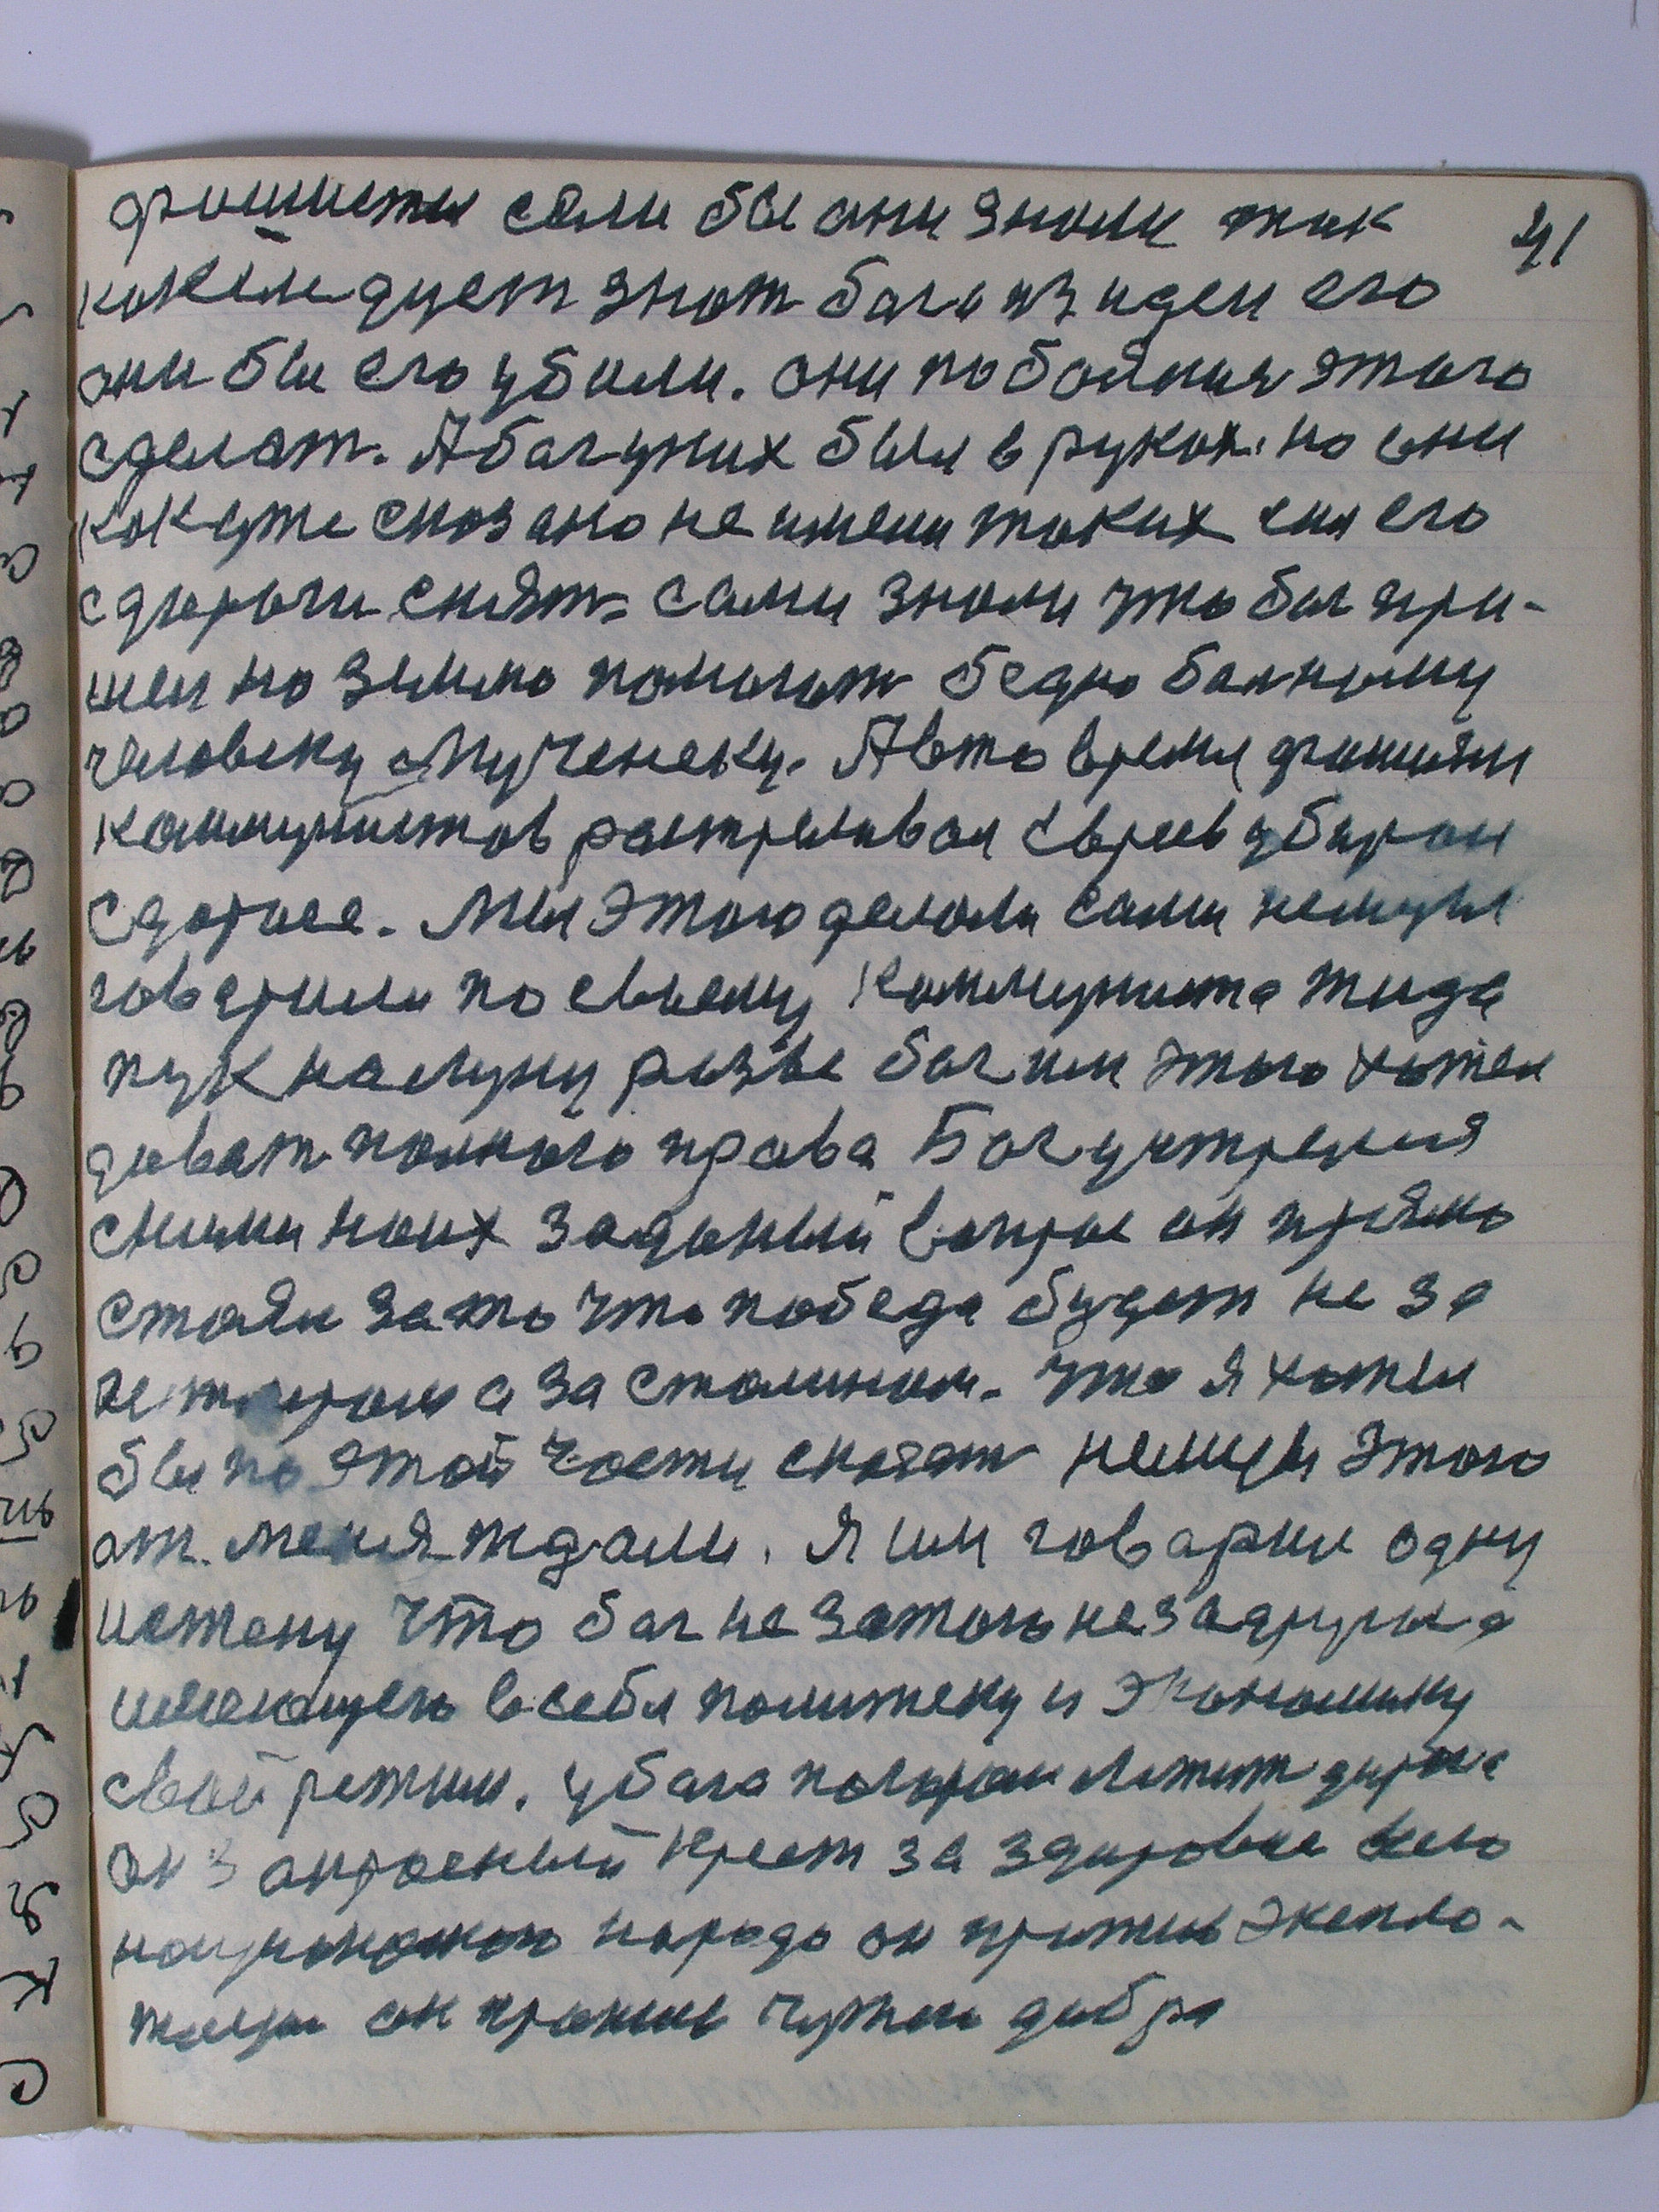 фашисты если бы они знали так 41
какследует знат бога из идеи его
они бы его убили. они побоялися этого
сделат. А бог уних был в руках. но они
как уже сказано не имели таких сил его
с дороги снят. сами знали что бог при-
шел на землю помогат бедно болному
человеку Мученеку. А вто время фашизм
коммунистов растреливал Евреев убирал
сдороге. Мы этого делоли сами немцы
говорили по своему коммуниста жида
пук налуну разве бог им этого хотел
доват полного права Бог устрелся
сними на их заданный вопрос он прямо
стоял зато что победа будет не за
гетлером а за сталиным. что я хотел
бы по этой части сказат немцы этого
от меня ждали. Я им говорил одну
истену что бог не затого незадруга
имеющего в себя политеку и экономику
свой режим. у бога погоран лежит дорога
он за огроеный крест за здоровие всего
национального народа он против экспло-
тации он против чужого добра